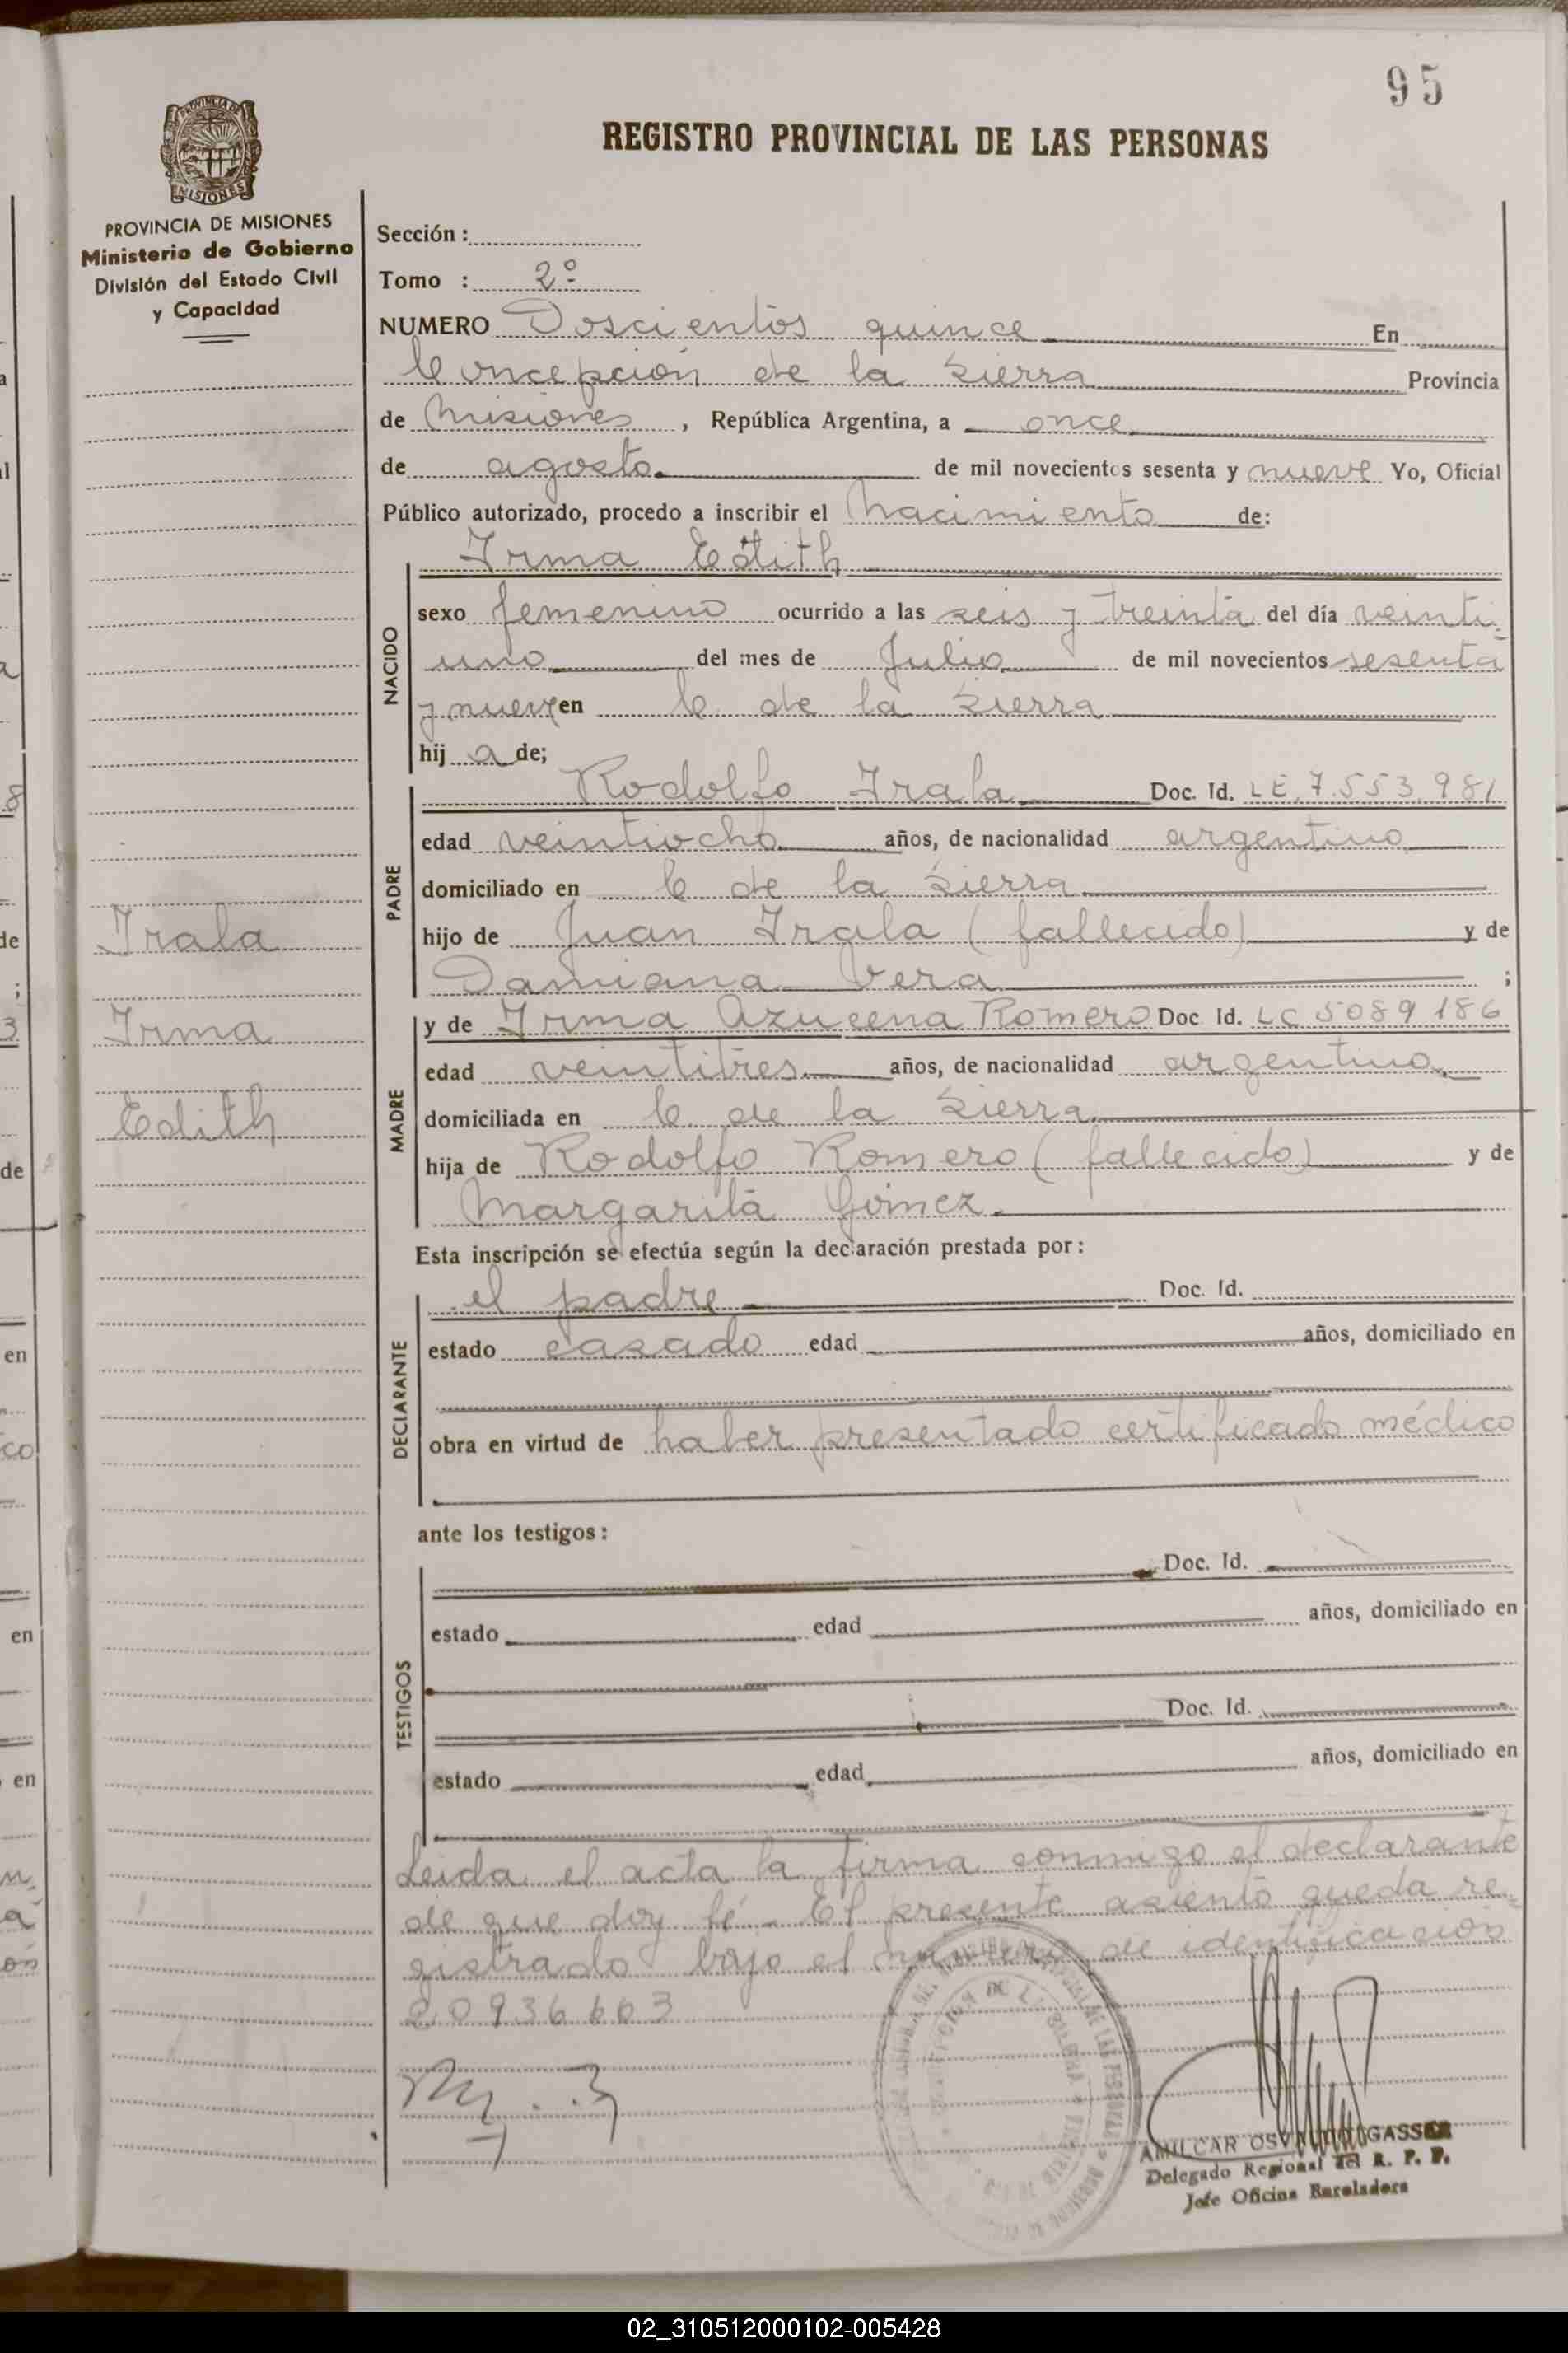 95
REGISTRO PROVINCIAL DE LAS PERSONAS
PROVINCIA DE MISIONES
Ministerio de Gobierno
División del Estado Civil
y Capacidad
Sección :
Tomo : 2º
NUMERO Doscientos quince En
Concepción de la Sierra Provincia
de Misiones, República Argentina, a once
de agosto. de mil novecientos sesenta y nueve Yo, Oficial
Público autorizado, procedo a inscribir el Nacimiento de:
Irma Edith
NACIDO
sexo femenino ocurrido a las seis y treinta del día veinti-
uno del mes de Julio de mil novecientos sesenta
y nueve en C. de la Sierra
hij a de;
PADRE
Rodolfo Irala Doc. Id. LE. 7.553.981
edad veintiocho años, de nacionalidad argentino
domiciliado en C. de la Sierra
hijo de Juan Irala (fallecido) y de
Damiana Vera ;
MADRE
y de Irma Azucena Romero Doc Id. LC 5089186
edad veintitres años, de nacionalidad argentina
domiciliada en C. de la Sierra
hija de Rodolfo Romero (fallecido) y de
Margarita Gómez.
Irala
Irma
Edith
Esta inscripción se efectúa según la declaración prestada por:
DECLARANTE
el padre Doc. Id.
estado casado edad años, domiciliado en
obra en virtud de haber presentado certificado médico
ante los testigos:
TESTIGOS
Doc. Id.
estado edad años, domiciliado en
Doc. Id.
estado edad años, domiciliado en
Leida el acta la firma conmigo el declarante
de que doy fé. El presente asiento queda re-
gistrado bajo el número de identificación
20936603
AMILCAR OSVALDO GASSER
Delegado Regional del R. P. P.
Jefe Oficina Enroladora
02_310512000102-005428